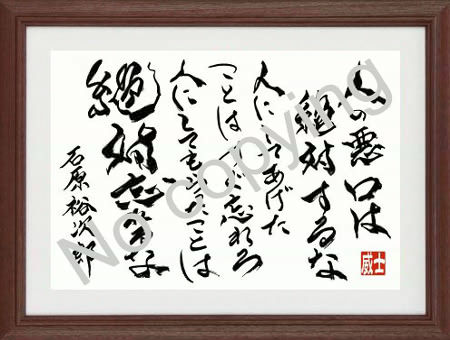 人の悪口は
絶対するな
人にしてあげた
ことはすぐ忘れろ
人にしてもらったことは
絶対忘れるな
石原裕次郎
威士
No copying